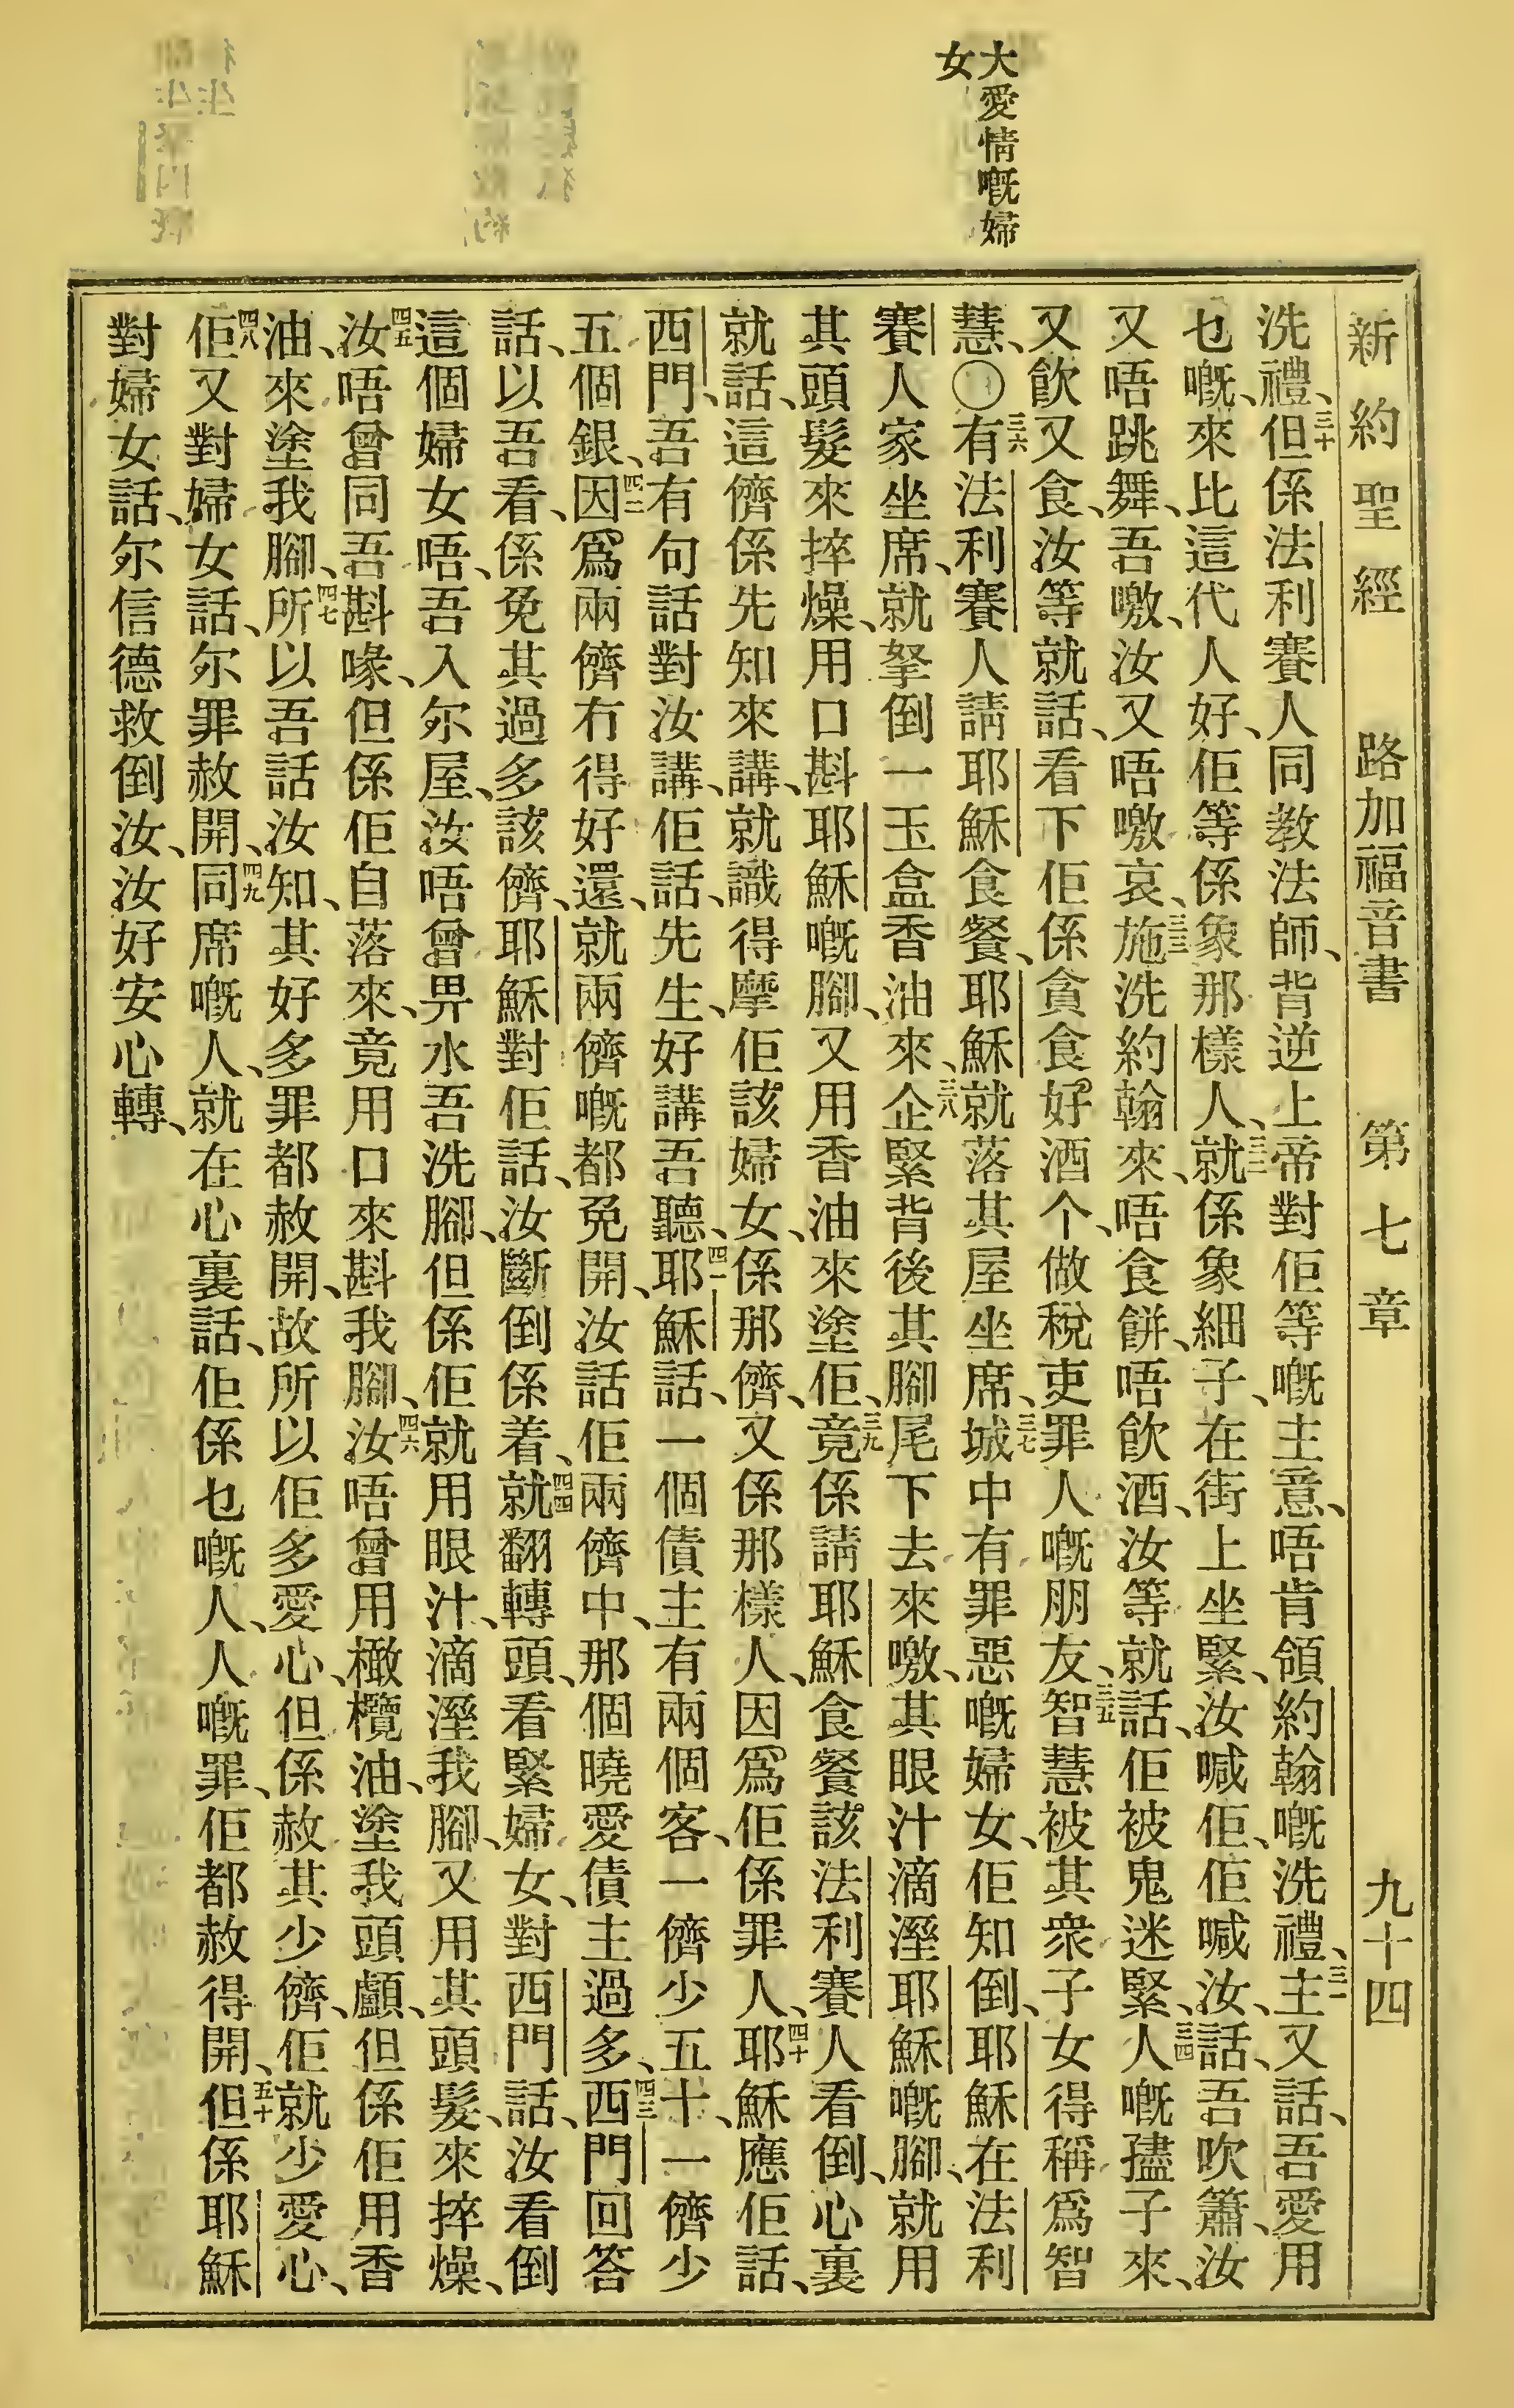 大愛情嘅婦
女
新約聖經 路加福音書 第七章 九十四
洗禮、三十但係法利賽人同教法師、背逆上帝對佢等嘅主意、唔肯領約翰嘅洗禮、三一主又話、吾愛用
乜嘅、來比這代人好、佢等係象那樣人、三二就係象細子、在街上坐緊、汝喊佢、佢喊汝、話、吾吹簫、汝
又唔跳舞、吾噭、汝又唔噭哀、三三施洗約翰來、唔食餅、唔飲酒、汝等就話、佢被鬼迷緊、三四人嘅孻子來、
又飲又食、汝等就話、看下佢係貪食好酒个、做稅吏罪人嘅朋友、三五智慧被其衆子女得稱爲智
慧、〇三六有法利賽人請耶穌食餐、耶穌就落其屋坐席、三七城中有罪惡嘅婦女、佢知倒、耶穌在法利
賽人家坐席、就拏倒一玉盒香油來、三八企緊背後其腳尾下去來噭、其眼汁滴溼耶穌嘅腳、就用
其頭髮來捽燥、用口斟耶穌嘅腳、又用香油來塗佢、三九竟係請耶穌食餐該法利賽人看倒、心裏
就話、這儕係先知來講、就識得摩佢該婦女、係那儕、又係那樣人、因爲佢係罪人、四十耶穌應佢話、
西門、吾有句話對汝講、佢話、先生、好講吾聽、四一耶穌話、一個債主有兩個客、一儕少五十、一儕少
五個銀、四二因爲兩儕冇得好還、就兩儕嘅都免開、汝話佢兩儕中、那個曉愛債主過多、四三西門回答
話、以吾看、係免其過多該儕、耶穌對佢話、汝斷倒係着、四四就翻轉頭、看緊婦女、對西門話、汝看倒
這個婦女唔、吾入尔屋、汝唔曾畀水吾洗腳、但係佢就用眼汁、滴溼我腳、又用其頭髮、來捽燥、
四五汝唔曾同吾斟喙、但係佢自落來、竟用口來斟我腳、四六汝唔曾用橄欖油、塗我頭顱、但係佢用香
油、來塗我腳、四七所以吾話汝知、其好多罪都赦開、故所以佢多愛心、但係赦其少儕、佢就少愛心、
四八佢又對婦女話、尔罪赦開、四九同席嘅人、就在心裏話、佢係乜嘅人、人嘅罪、佢都赦得開、五十但係耶穌
對婦女話、尔信德救倒汝、汝好安心轉、